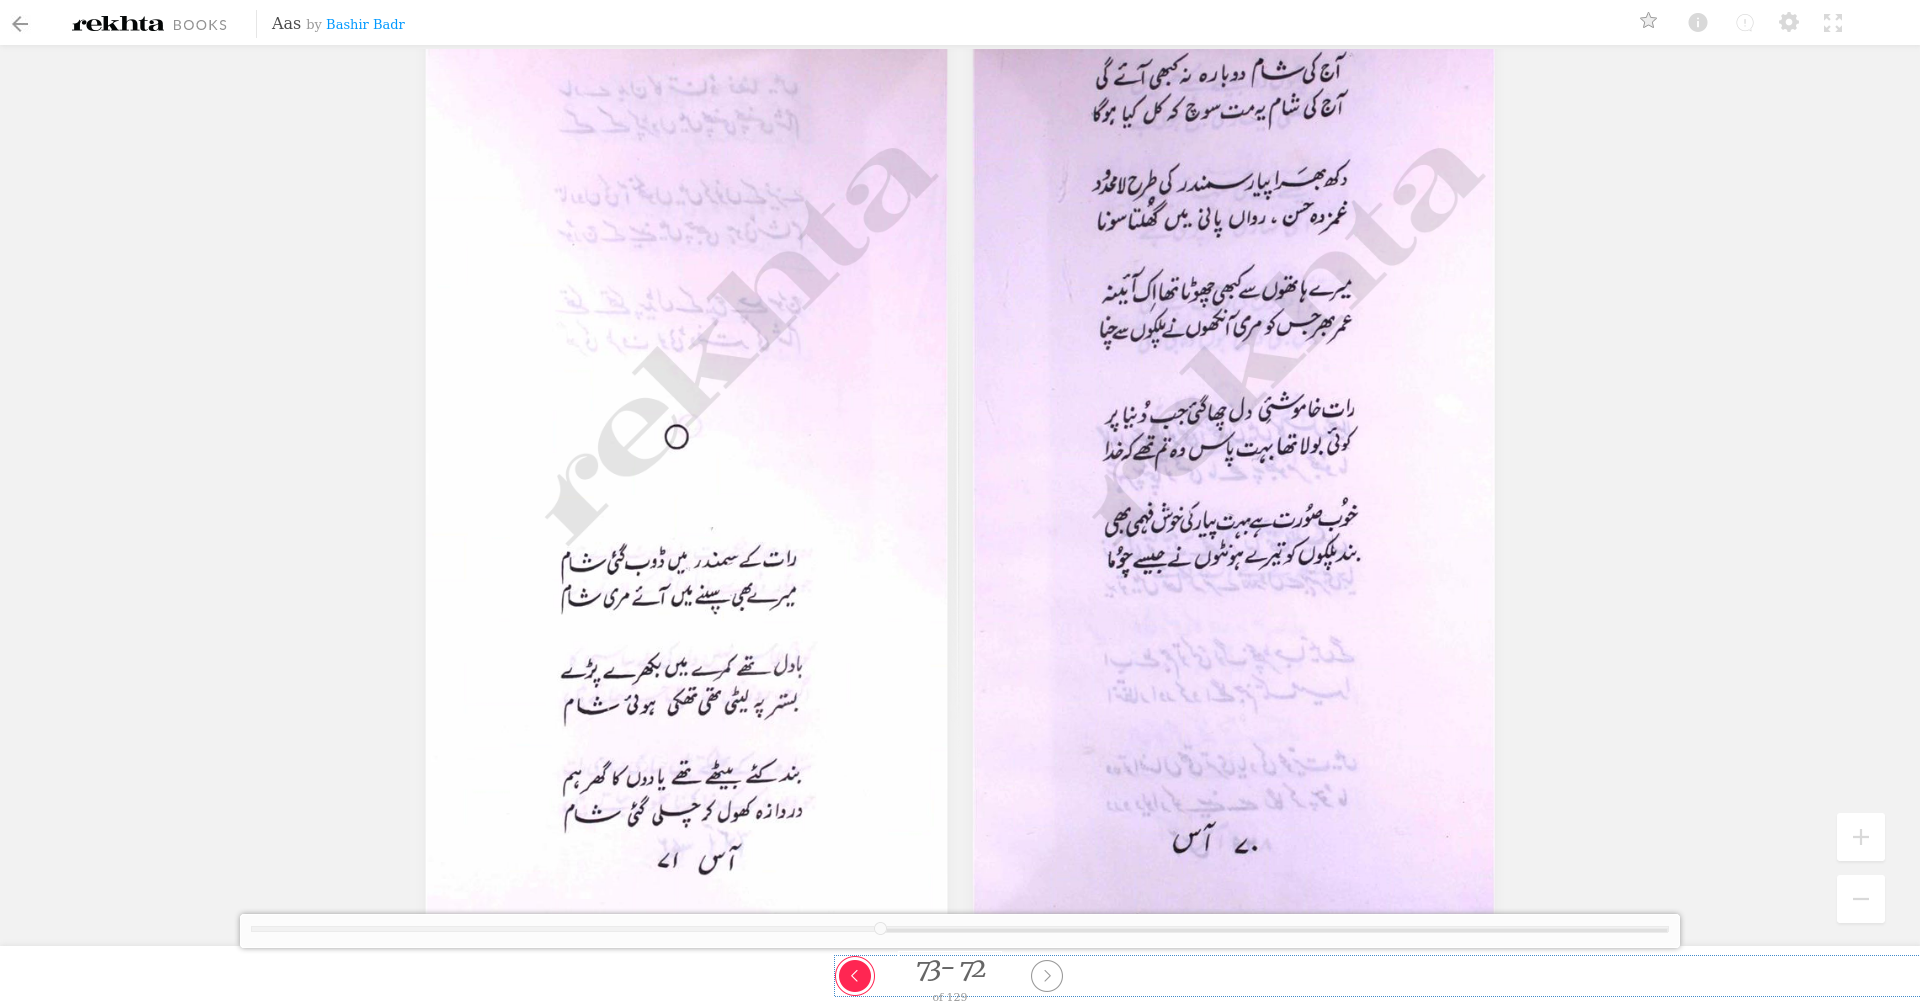 rekhta BOOKS Aas by Bashir Badr
آج کی شام دوبارہ نہ کبھی آئے گی
آج کی شام یہ مت سوچ کہ کل کیا ہوگا
دکھ بھرا پیار سمندر کی طرح لامحدود
غمزدہ حسن ، رواں پانی میں گھُلتا سونا
میرے ہاتھوں سے کبھی چھوٹا تھا اِک آئینہ
عمر بھر جس کو مری آنکھوں نے پلکوں سے چنا
رات خاموشئِ دل چھا گئی جب دُنیا پر
کوئی بولا تھا بہت پاس وہ تم تھے کہ خدا
خوُب صوُرت ہے بہت پیار کی خوش فہمی بھی
بند پلکوں کو تیرے ہونٹوں نے جیسے چوُما
۷۰ آس
رات کے سمندر میں ڈوب گئی شام
میرے بھی سپنے میں آئے مری شام
بادل تھے کمرے میں بکھرے پڑے
بستر پہ لیٹی تھی تھکی ہوئی شام
بند کئے بیٹھے تھے یادوں کا گھر ہم
دروازہ کھول کر چلی گئی شام
آس ۷۱
rekhta
rekhta
73- 72
of 129